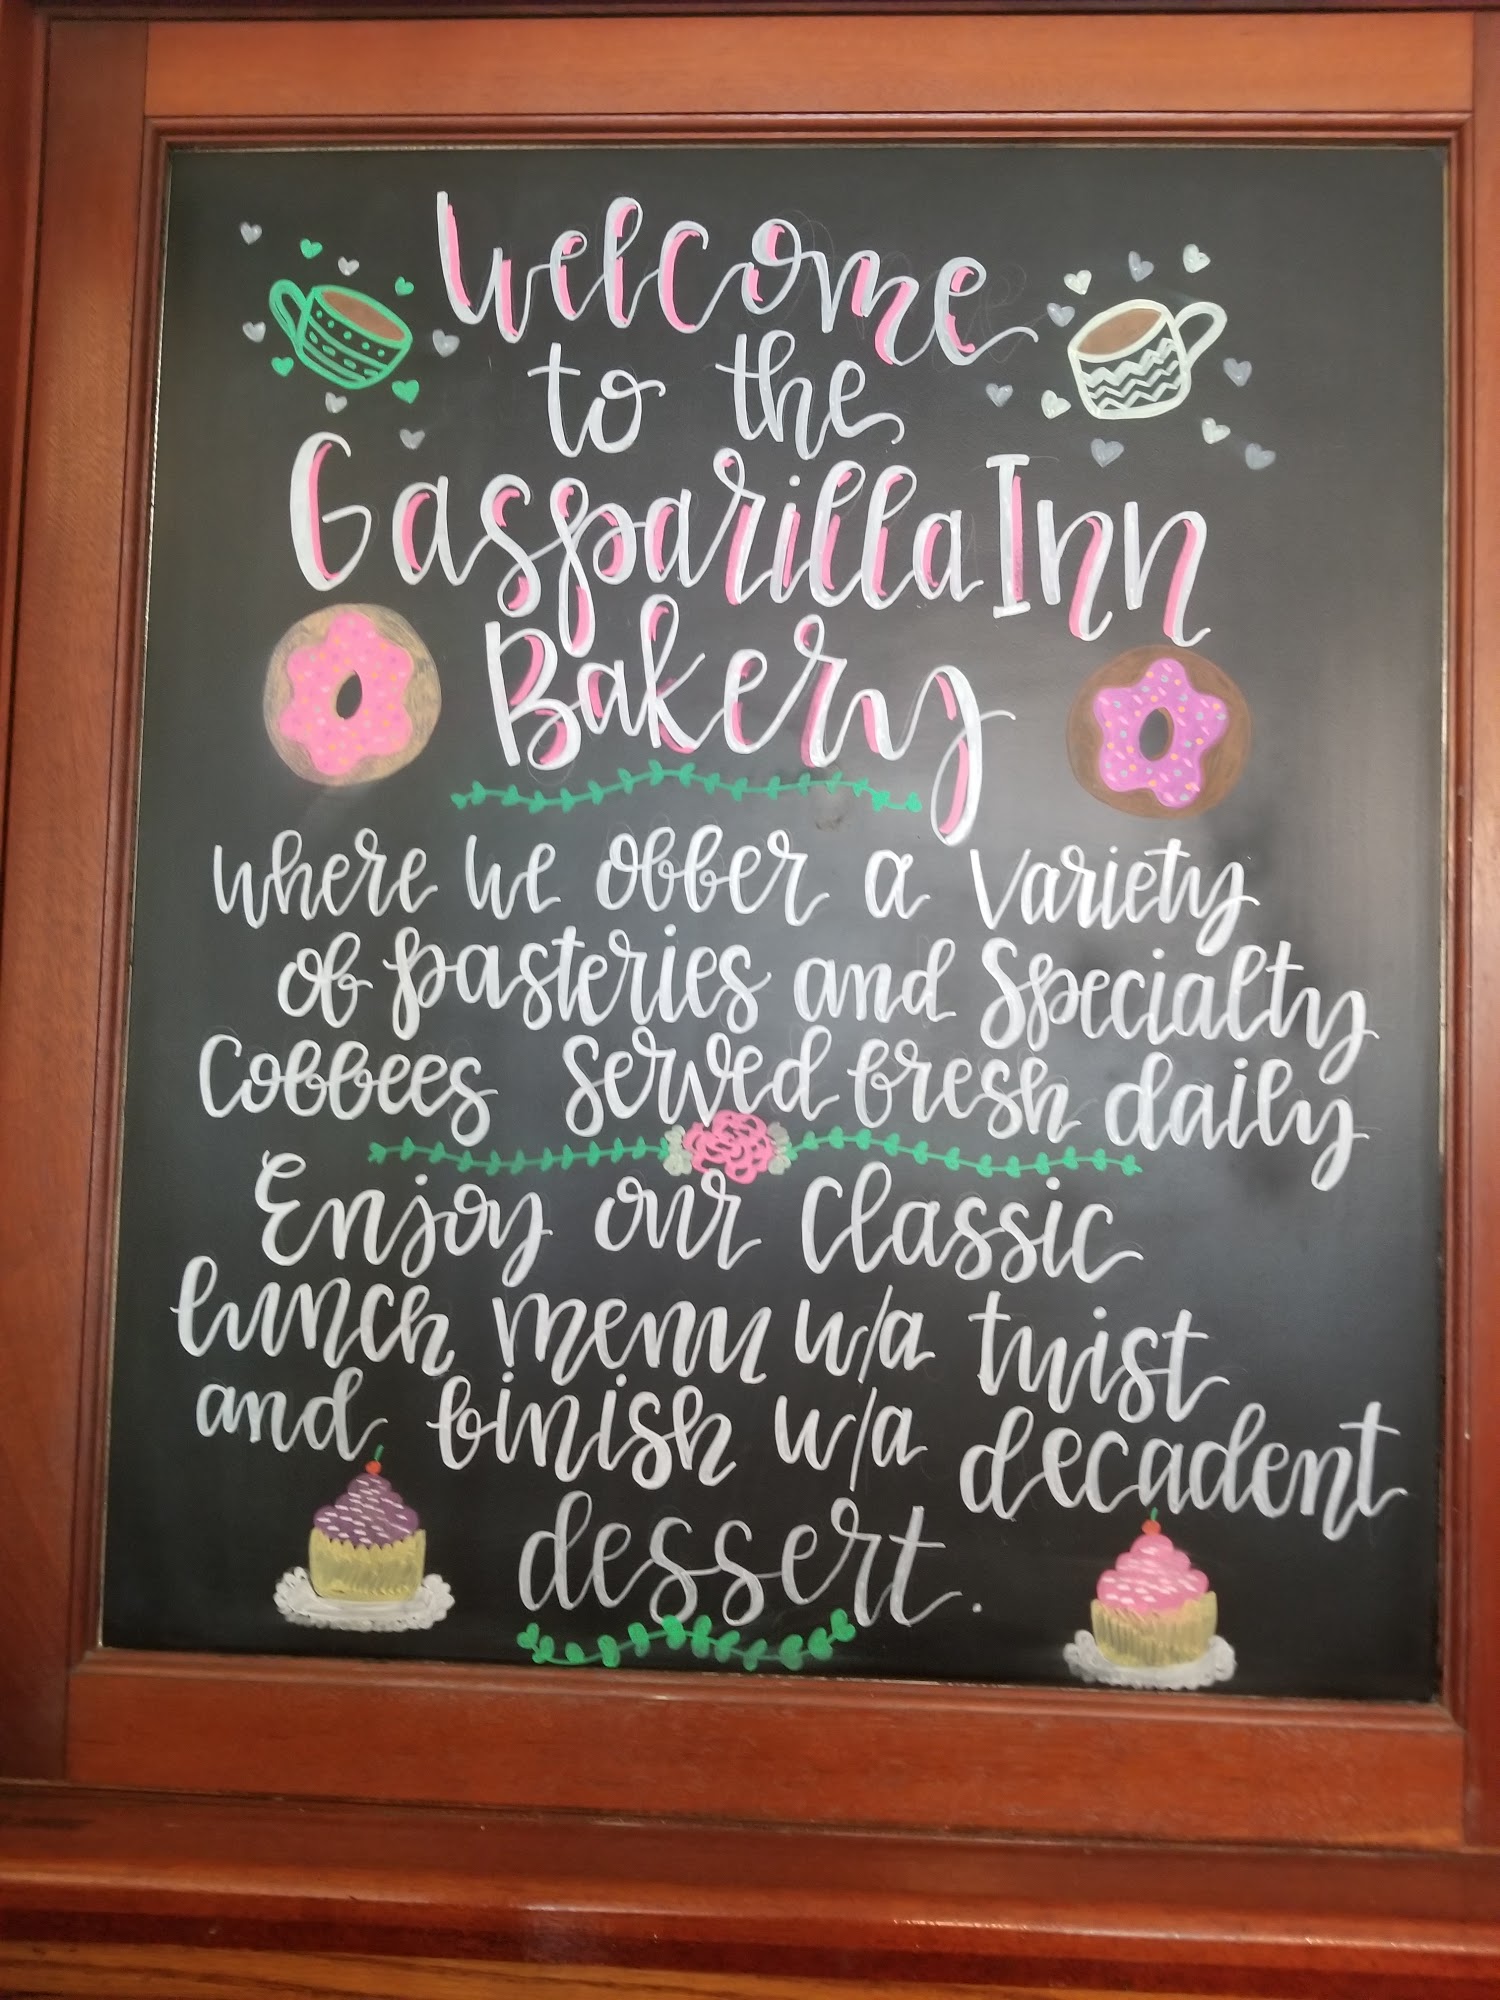 Welcome
to the
Gasparilla Inn
Bakery
where we offer a variety
of pasteries and Specialty
Coffees Served fresh daily
Enjoy our Classic
lunch menu w/a twist
and finish w/a decadent
dessert.